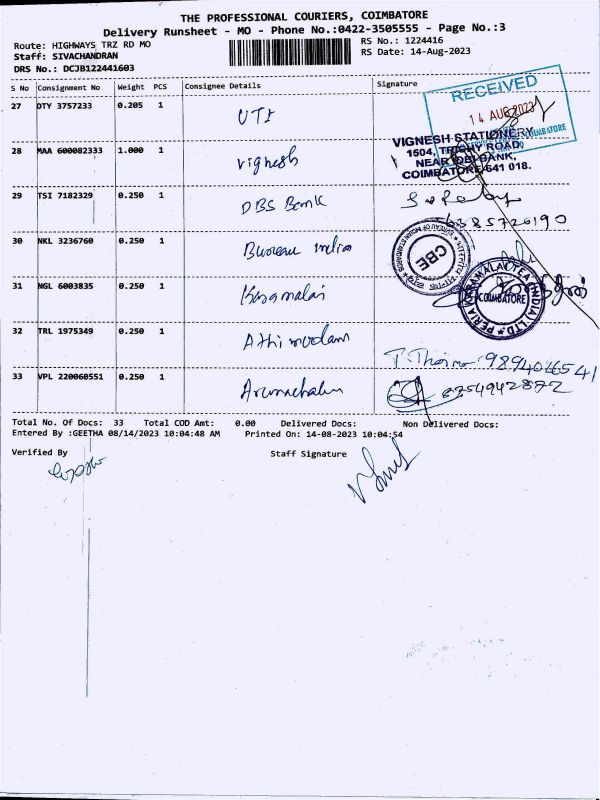 THE PROFESSIONAL COURIERS, COIMBATORE
Delivery Runsheet - MO - Phone No.:0422-3505555 - Page No.:3
Route: HIGHWAYS TRZ RD MO
RS No.: 1224416
Staff: SIVACHANDRAN
RS Date: 14-Aug-2023
DRS No.: DCJB122441603
S No Consignment No Weight PCS Consignee Details Signature
RECEIVED
14 AUG 2023
COIMBATORE
27 DTY 3757233 0.205 1 UTI
VIGNESH STATIONERY
1504, TRICHY ROAD,
NEAR IDBI BANK,
COIMBATORE-641 018.
28 MAA 600082333 1.000 1 Vignesh
29 TSI 7182329 0.250 1 DBS Bank
6385726190
30 NKL 3236760 0.250 1 Bureau India
BUREAU OF INDIAN STANDARDS
CBE
31 NGL 6003835 0.250 1
PERIA KARAMALAI TEA (INDIA) LTD.
COIMBATORE
32 TRL 1975349 0.250 1
9894026541
33 VPL 220060551 0.250 1 Arunachalam
6354942872
Total No. Of Docs: 33 Total COD Amt: 0.00 Delivered Docs: Non Delivered Docs:
Entered By :GEETHA 08/14/2023 10:04:48 AM Printed On: 14-08-2023 10:04:54
Verified By Staff Signature